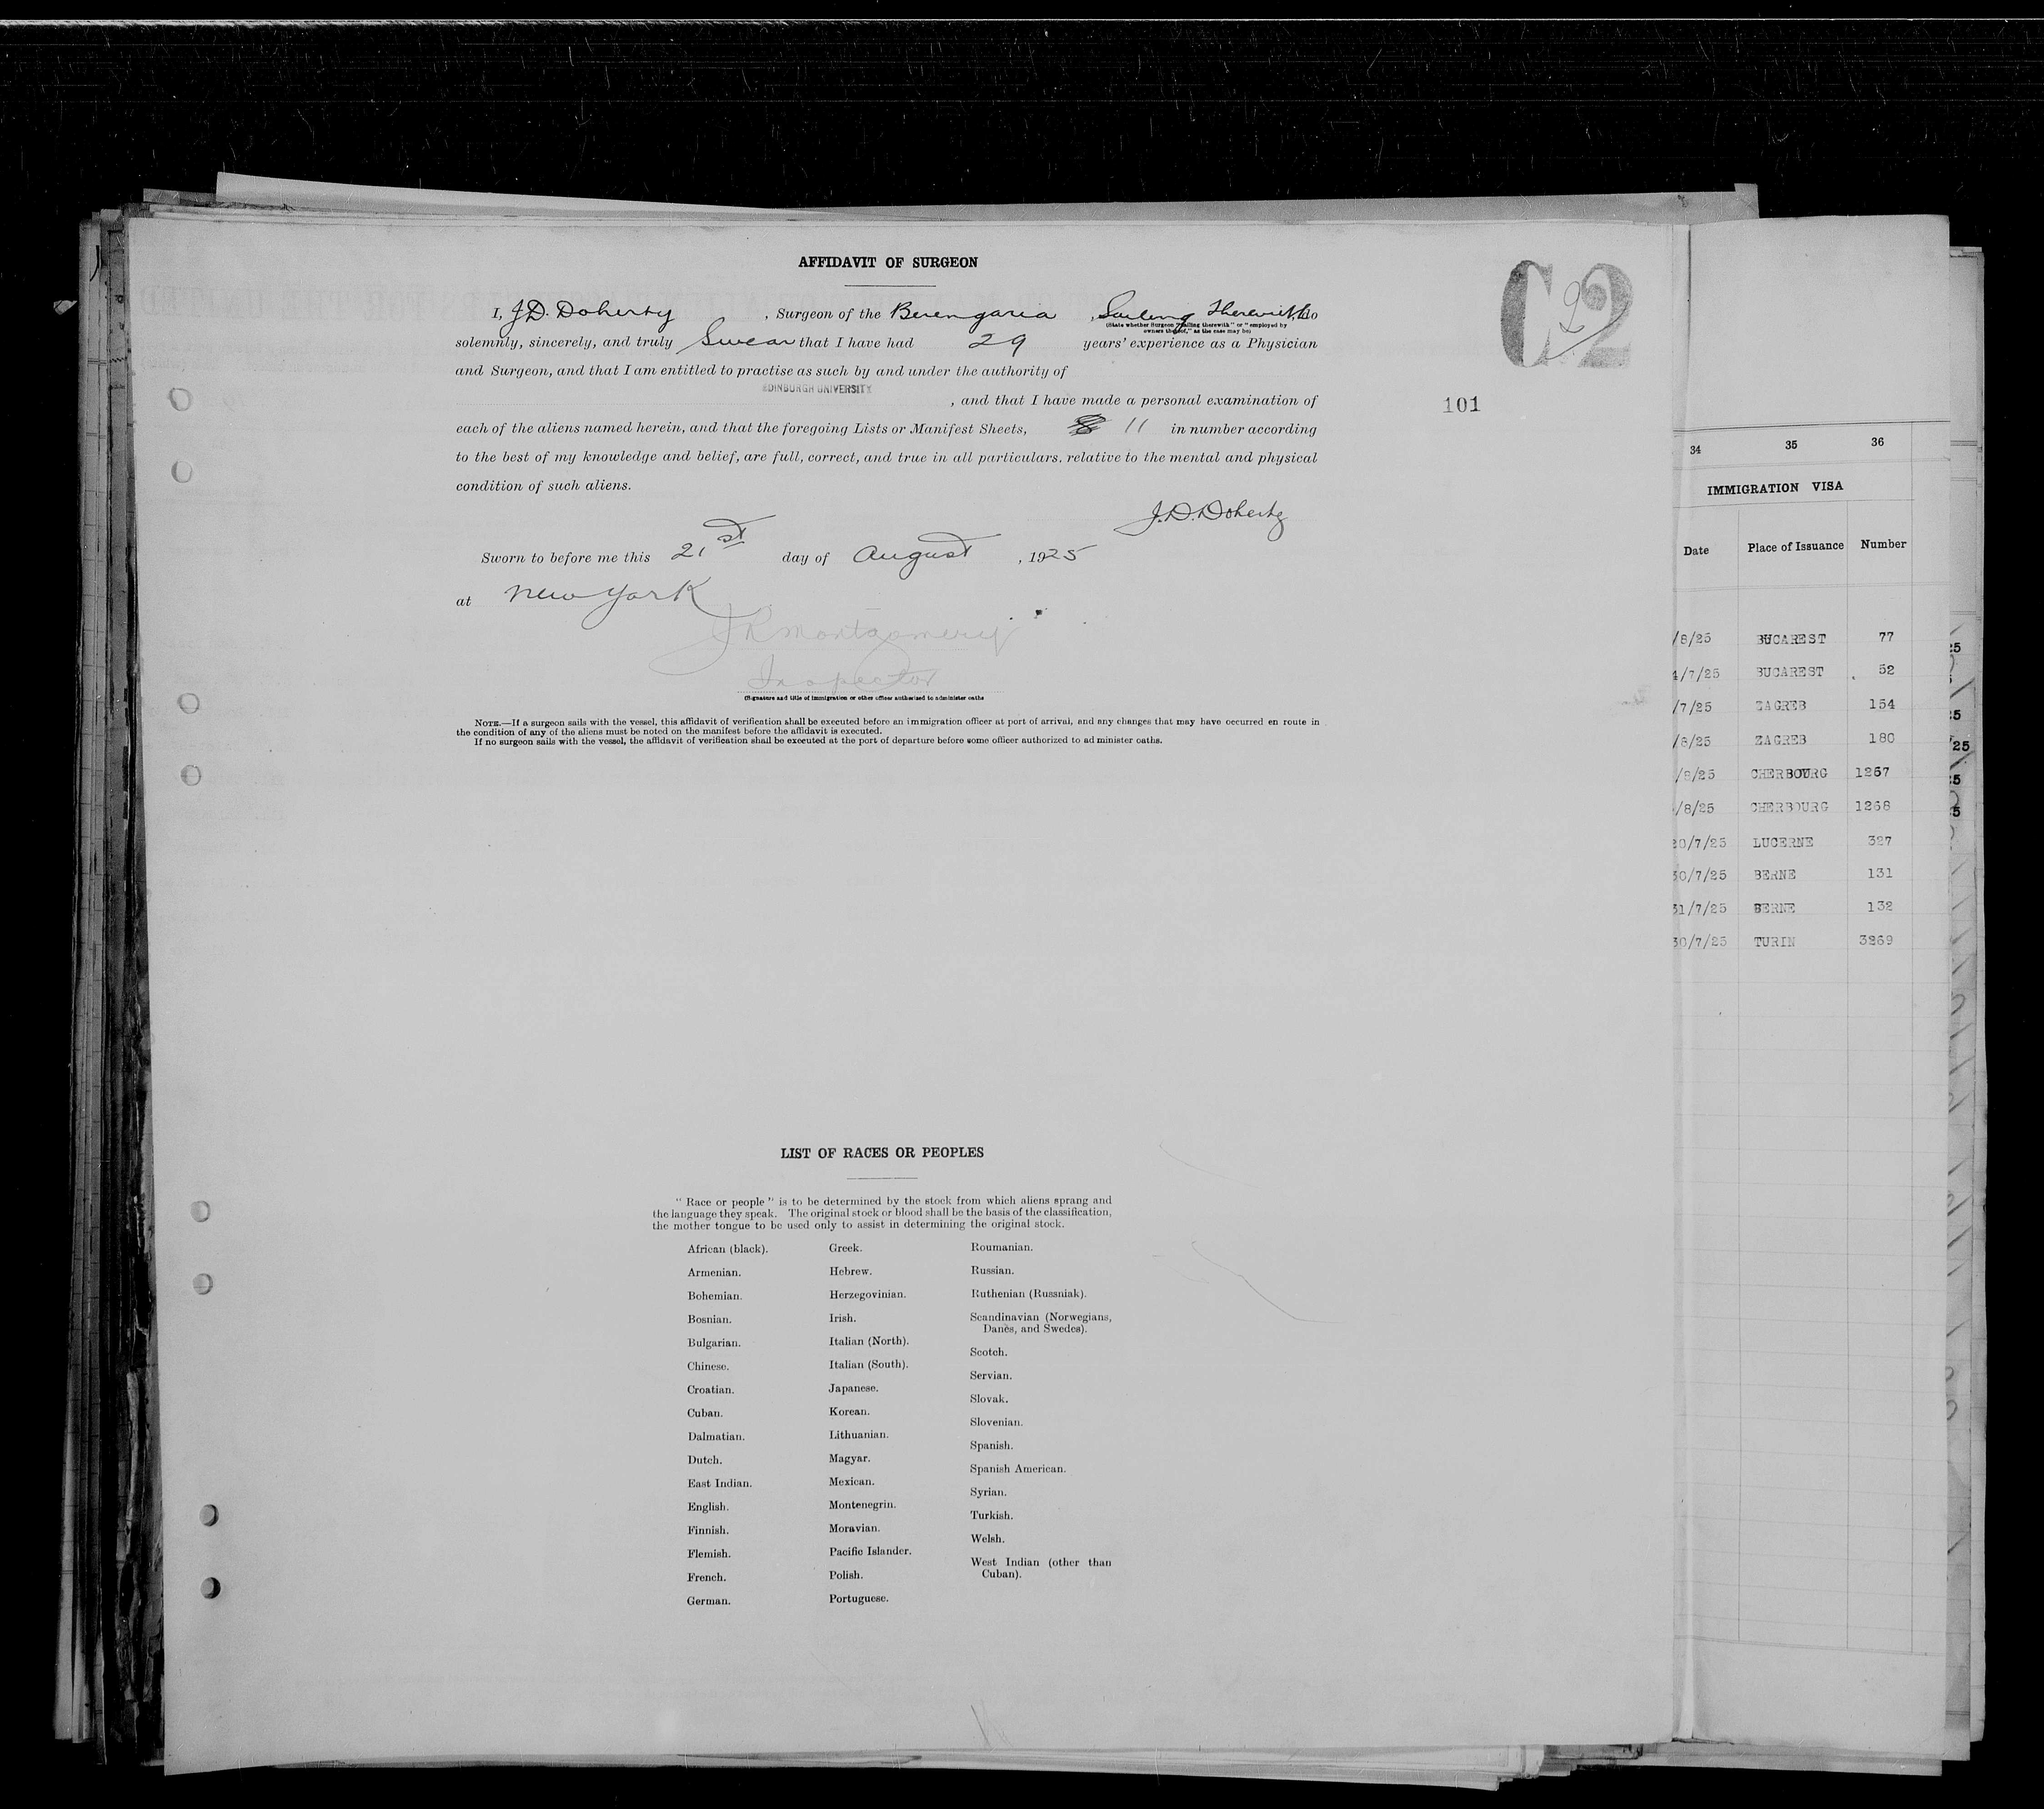 AFFIDAVIT OF SURGEON
C2
2
101
I, J.D. Doherty, Surgeon of the Berengaria, Sailing Therewith, do
(State whether Surgeon "sailing therewith" or "employed by
owners thereof," as the case may be)
solemnly, sincerely, and truly Swear that I have had 29 years' experience as a Physician
and Surgeon, and that I am entitled to practise as such by and under the authority of
EDINBURGH UNIVERSITY
, and that I have made a personal examination of
each of the aliens named herein, and that the foregoing Lists or Manifest Sheets, 11 in number according
to the best of my knowledge and belief, are full, correct, and true in all particulars, relative to the mental and physical
condition of such aliens.
J.D. Doherty
Sworn to before me this 21st day of August, 1925
at New York
J R Montgomery
Inspector
(Signature and title of immigration or other officer authorized to administer oaths
NOTE.—If a surgeon sails with the vessel, this affidavit of verification shall be executed before an immigration officer at port of arrival, and any changes that may have occurred en route in
the condition of any of the aliens must be noted on the manifest before the affidavit is executed.
If no surgeon sails with the vessel, the affidavit of verification shall be executed at the port of departure before some officer authorized to administer oaths.
LIST OF RACES OR PEOPLES
"Race or people" is to be determined by the stock from which aliens sprang and
the language they speak. The original stock or blood shall be the basis of the classification,
the mother tongue to be used only to assist in determining the original stock.
African (black).
Armenian.
Bohemian.
Bosnian.
Bulgarian.
Chinese.
Croatian.
Cuban.
Dalmatian.
Dutch.
East Indian.
English.
Finnish.
Flemish.
French.
German.
Greek.
Hebrew.
Herzegovinian.
Irish.
Italian (North).
Italian (South).
Japanese.
Korean.
Lithuanian.
Magyar.
Mexican.
Montenegrin.
Moravian.
Pacific Islander.
Polish.
Portuguese.
Roumanian.
Russian.
Ruthenian (Russniak).
Scandinavian (Norwegians,
Danes, and Swedes).
Scotch.
Servian.
Slovak.
Slovenian.
Spanish.
Spanish American.
Syrian.
Turkish.
Welsh.
West Indian (other than
Cuban).
34 35 36
IMMIGRATION VISA
Date Place of Issuance Number
/8/25 BUCAREST 77
4/7/25 BUCAREST 52
/7/25 ZAGREB 154
/8/25 ZAGREB 180
/8/25 CHERBOURG 1267
/8/25 CHERBOURG 1268
20/7/25 LUCERNE 327
30/7/25 BERNE 131
31/7/25 BERNE 132
30/7/25 TURIN 3269
25
5
25
5
5